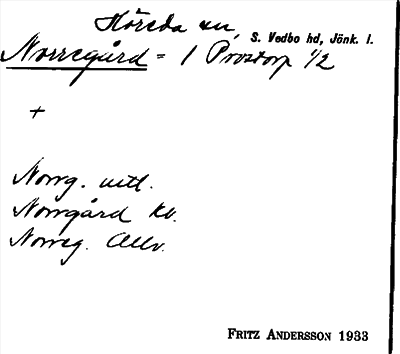 Höreda sn, S. Vedbo hd, Jönk. l.
Norregård = 1 Prostorp 1/2
+
Norrg. uttl.
Norrgård Kv.
Norreg. Allv.
FRITZ ANDERSSON 1933